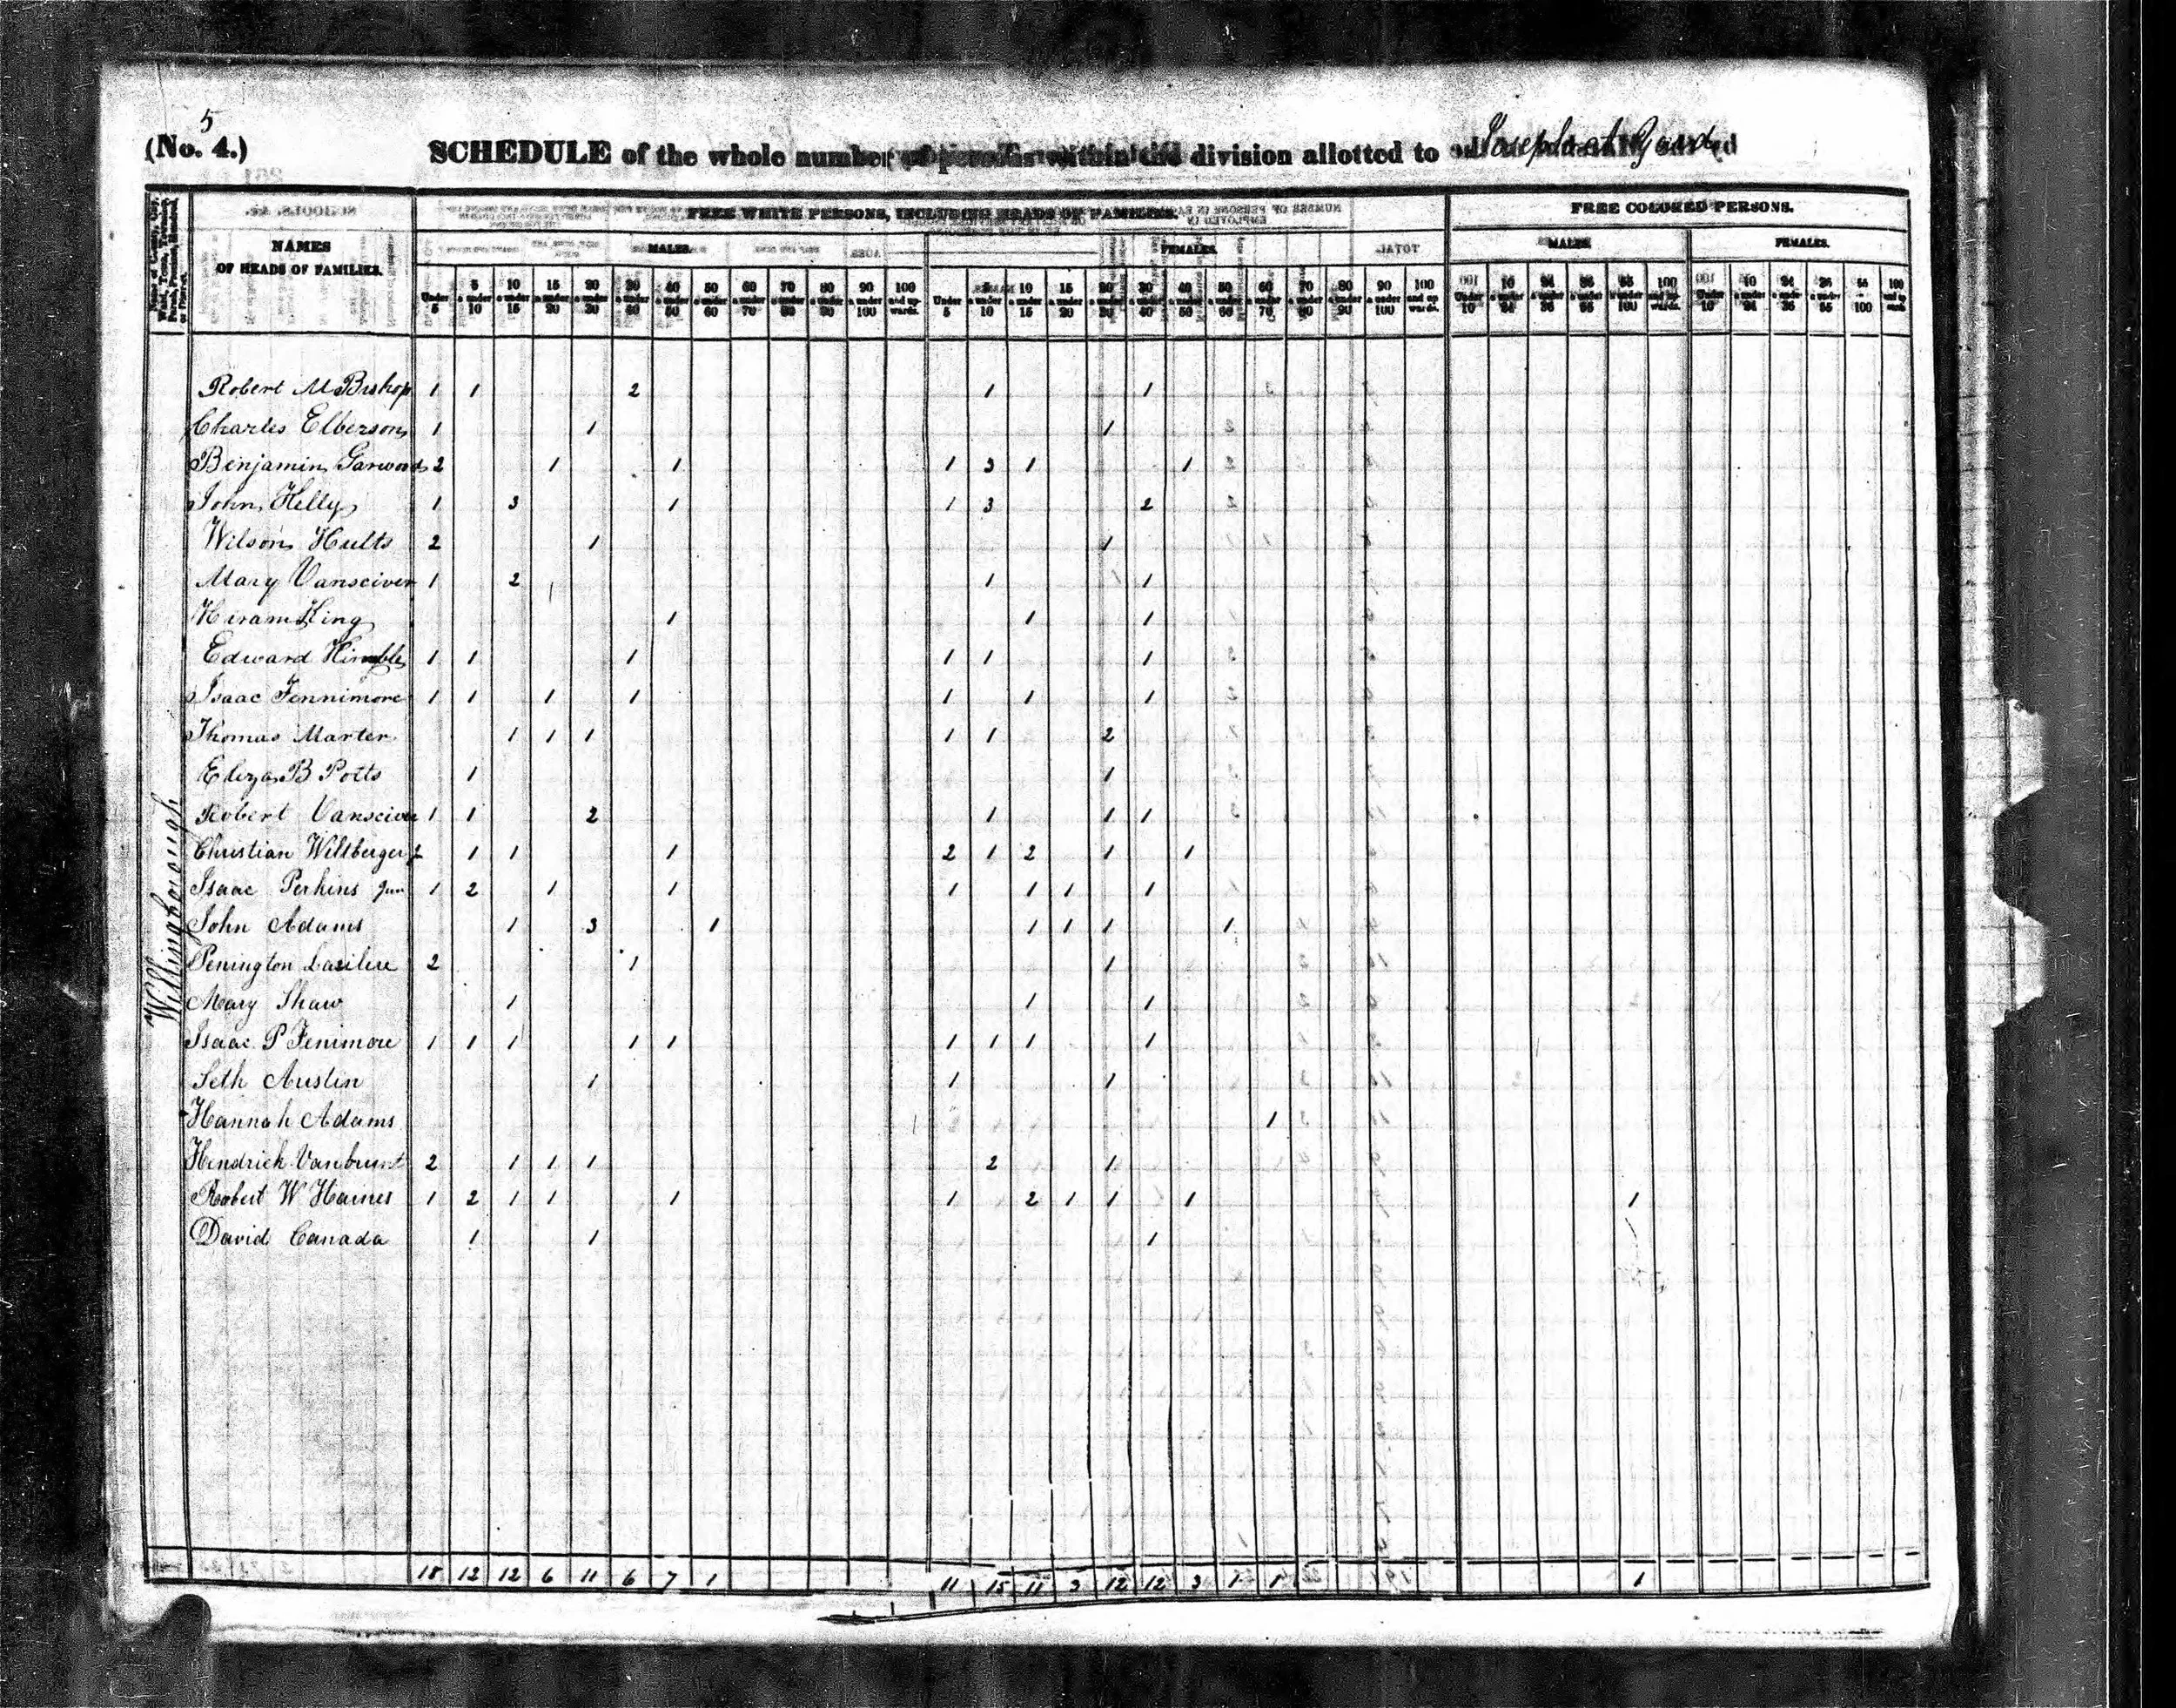 5
(No. 4.) SCHEDULE of the whole number of persons within the division allotted to
FREE WHITE PERSONS, INCLUDING HEADS OF FAMILIES. FREE COLORED PERSONS.
NAMES OF HEADS OF FAMILIES.
MALES. FEMALES. MALES. FEMALES.
Under 5 5 & under 10 10 & under 15 15 & under 20 20 & under 30 30 & under 40 40 & under 50 50 & under 60 60 & under 70 70 & under 80 80 & under 90 90 & under 100 100 and upwards. Under 5 5 & under 10 10 & under 15 15 & under 20 20 & under 30 30 & under 40 40 & under 50 50 & under 60 60 & under 70 70 & under 80 80 & under 90 90 & under 100 100 and upwards.
Willingborough
Robert M Bishop 1 1 2 1 1
Charles Elberson 1 1 1
Benjamin Garwood 2 1 1 1 3 1 1
John Kelly 1 3 1 1 3 2
Wilson Hults 2 1 1
Mary Vansciver 1 2 1 1
Hiram King 1 1 1
Edward Kimble 1 1 1 1 1 1
Isaac Fennimore 1 1 1 1 1 1 1
Thomas Marter 1 1 1 1 1 2
Eliza B Potts 1 1
Robert Vansciver 1 1 2 1 1 1
Christian Wiltberger 2 1 1 1 2 1 2 1 1
Isaac Perkins Jun 1 2 1 1 1 1 1 1
John Adams 1 3 1 1 1 1 1
Penington 2 1 1
Mary Shaw 1 1 1
Isaac P Fenimore 1 1 1 1 1 1 1 1 1
Seth Austin 1 1 1
Hannah Adams 1
Hendrick Vanbrunt 2 1 1 1 2 1
Robert W Haines 1 2 1 1 1 1 2 1 1 1 1
David Canada 1 1 1
18 12 12 6 11 6 7 1 11 15 11 3 12 12 3 1 1 1